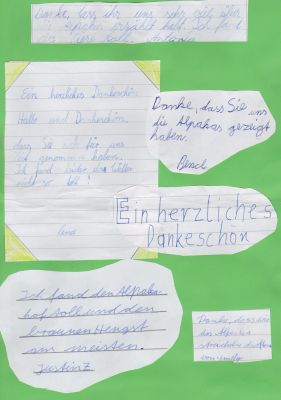 Danke, dass ihr uns sehr viel über
Alpakas erzählt habt. Ich fand
Ein herzliches Dankeschön
Hallo und Dankeschön,
dass Sie sich für uns
Zeit genommen haben.
Ich fand
Danke, dass Sie uns
die Alpakas gezeigt
haben.
Ein herzliches
Dankeschön
Ich fand den Alpaka
hof toll und den
braunen Hengst
am meisten.
Justin Z.
Danke, dass wir
die Alpakas